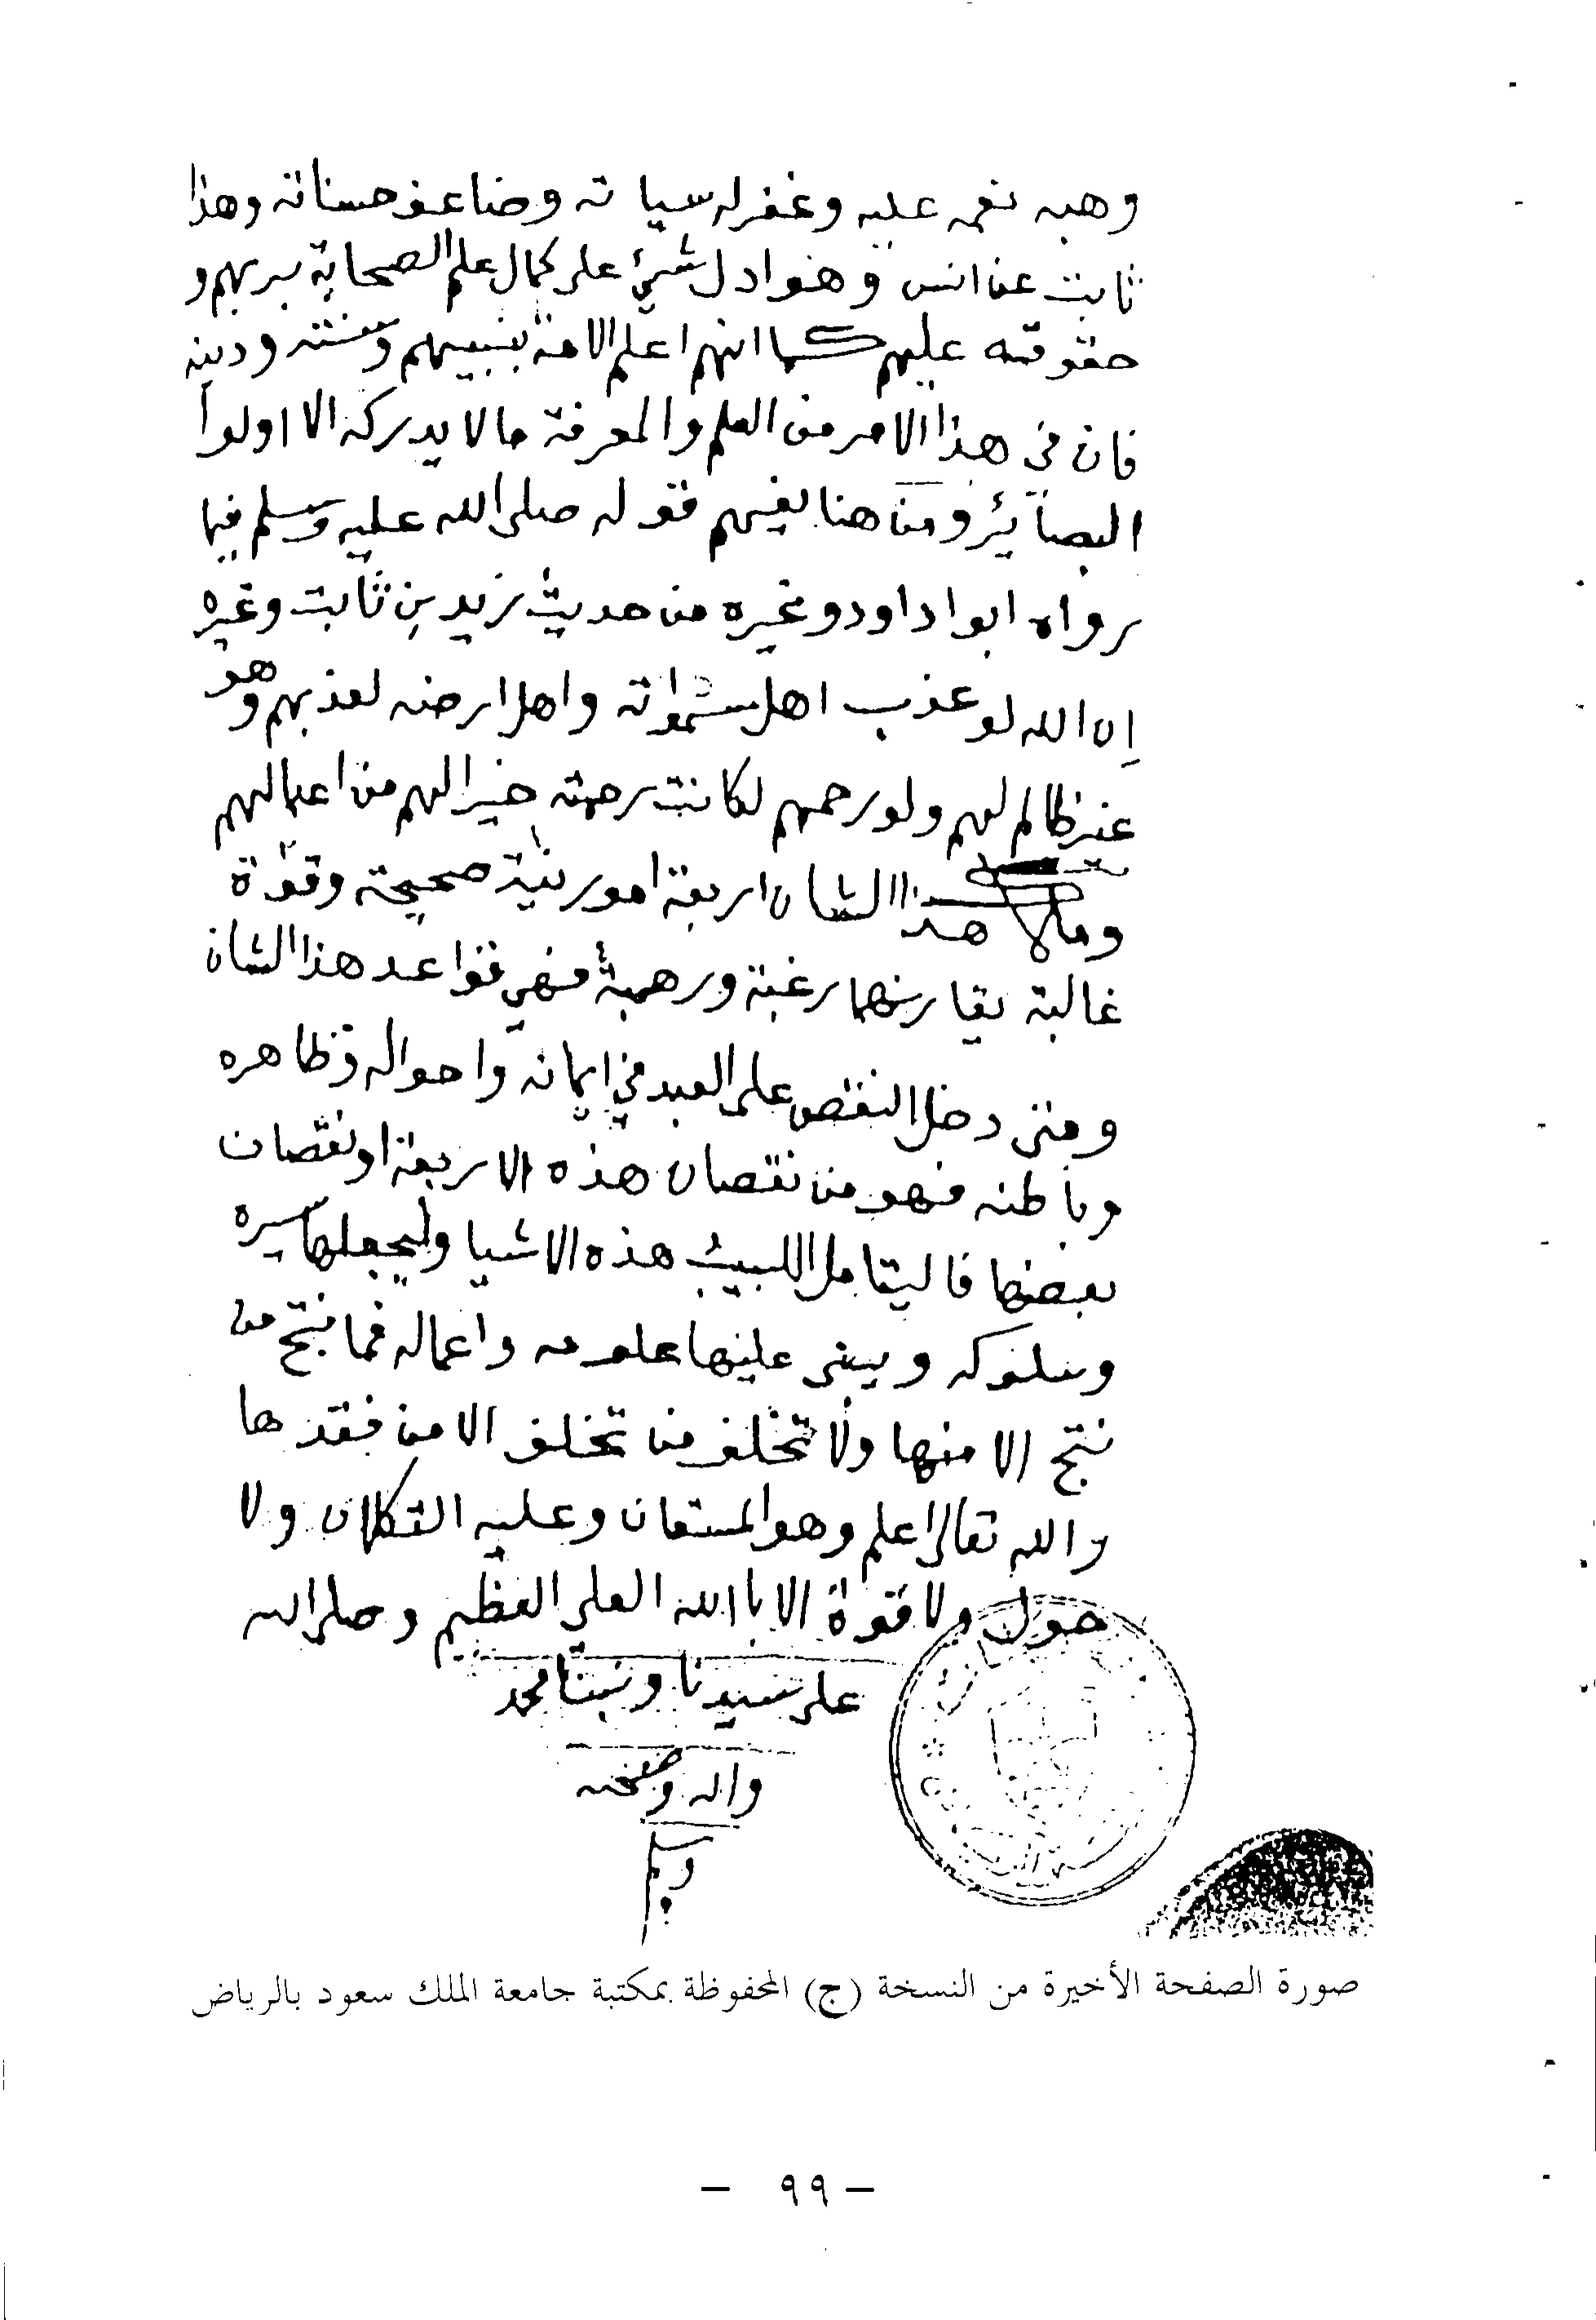 وهبه نعمه عليه وغفر له سياته وضاعف حسناته وهذا
ثابت عن انس وهو ادل شيئ على كمال علم الصحابة بربهم و
حقوقه عليهم كما انهم اعلم الامة بنبيهم وسنته ودينه
فان في هذا الامر من العلم والمعرفة ما لا يدركه الا اولوا
البصائر ومن هنا يفهم قوله صلى الله عليه وسلم فيما
رواه ابوا داود وغيره من حديث زيد بن ثابت وغيره
إن الله لو عذب اهل سمواته واهل ارضه لعذبهم وهو
غير ظالم لهم ولو رحمهم لكانت رحمته خيرا لهم من اعمالهم
وملاك هذا الشان اربعة امور نية صحيحة وقوة
غالبة يقارنهما رغبة ورهبة فهي قواعد هذا الشان
ومتى دخل النقص على العبد في ايمانه واحواله وظاهره
وباطنه فهو من نقصان هذه الاربعة او نقصان
بعضها فاليتامل اللبيب هذه الاشيا وليجعلها سيره
وسلوكه ويبنى عليها علومه واعماله فما نتج من
نتج الا منها ولا تخلف من تخلف الا من فقدها
والله تعالى اعلم وهو المستعان وعليه التكلان ولا
حول ولا قوة الا باالله العلي العظيم وصلى الله
على سيدنا ونبينا محمد
واله وصحبه
وسلم
صورة الصفحة الأخيرة من النسخة (ج) المحفوظة بمكتبة جامعة الملك سعود بالرياض
— ٩٩ —